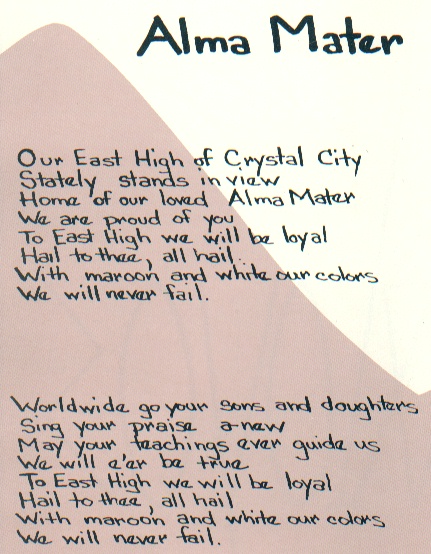 Alma Mater
Our East High of Crystal City
Stately stands in view
Home of our loved Alma Mater
We are proud of you
To East High we will be loyal
Hail to thee, all hail
With maroon and white our colors
We will never fail.
Worldwide go your sons and daughters
Sing your praise a-new
May your teachings ever guide us
We will e'er be true
To East High we will be loyal
Hail to thee, all hail
With maroon and white our colors
We will never fail.